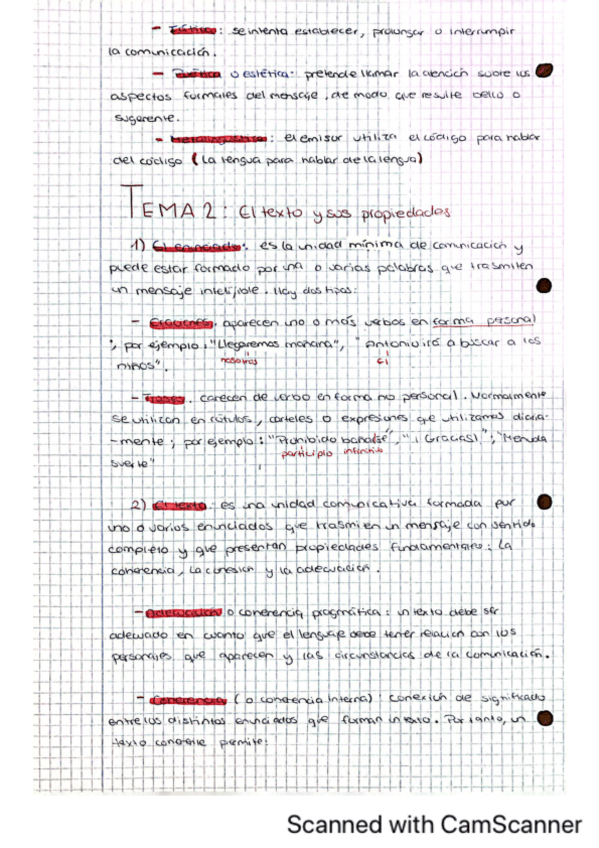 - Fática: se intenta establecer, prolongar o interrumpir
la comunicación.
- Poética o estética: pretende llamar la atención sobre los
aspectos formales del mensaje, de modo que resulte bello o
sugerente.
- Metalingüística: el emisor utiliza el código para hablar
del código (La lengua para hablar de la lengua)
TEMA 2: El texto y sus propiedades
1) El enunciado: es la unidad mínima de comunicación y
puede estar formado por una o varias palabras que trasmiten
un mensaje inteligible. Hay dos tipos:
- Oraciones, aparecen uno o más verbos en forma personal
, por ejemplo: "Llegaremos mañana", "Antonio irá a buscar a los
nosotros él
niños".
- Frases, carecen de verbo en forma no personal. Normalmente
se utilizan en rótulos, carteles o expresiones que utilizamos diaria-
-mente; por ejemplo: "Prohibido bañarse", "¡Gracias!", "Menuda
participio infinitivo
suerte"
2) El texto: es una unidad comunicativa formada por
uno o varios enunciados que trasmiten un mensaje con sentido
completo y que presentan propiedades fundamentales: La
coherencia, la cohesión y la adecuación.
- Adecuación o coherencia pragmática: un texto debe ser
adecuado en cuanto que el lenguaje debe tener relación con los
personajes que aparecen y las circunstancias de la comunicación.
- Coherencia (o coherencia interna): conexión de significado
entre los distintos enunciados que forman un texto. Por tanto, un
texto coherente permite:
Scanned with CamScanner